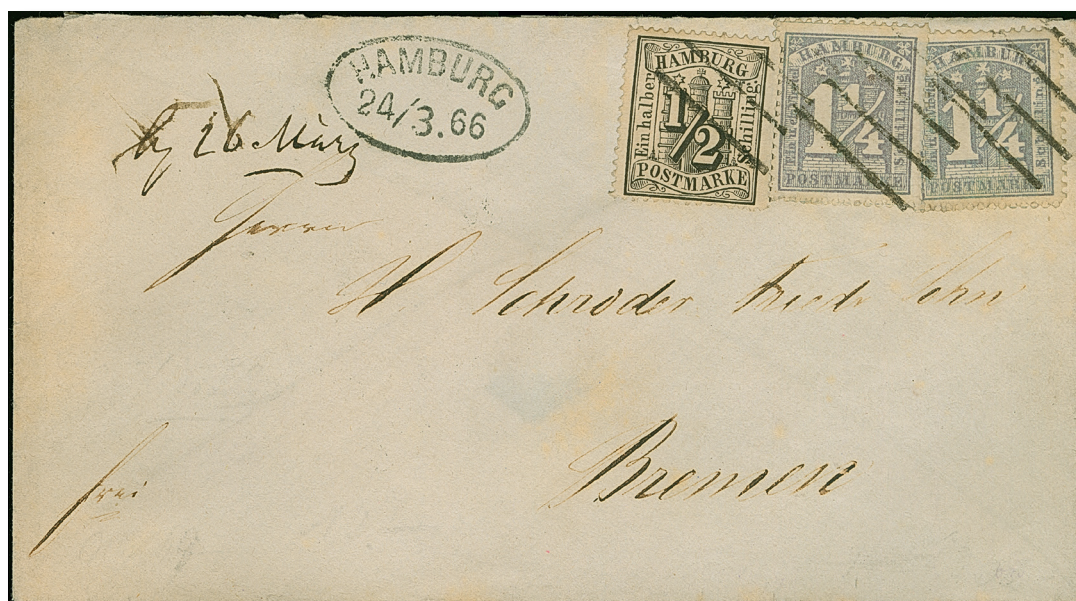 HAMBURG
24/3.66
26 März
HAMBURG
Ein halber
1/2
Schilling
POSTMARKE
HAMBURG
1 1/4
POSTMARKE
HAMBURG
1 1/4
POSTMARKE
Herrn
H Schröder Fried Sohn
Bremen
frei